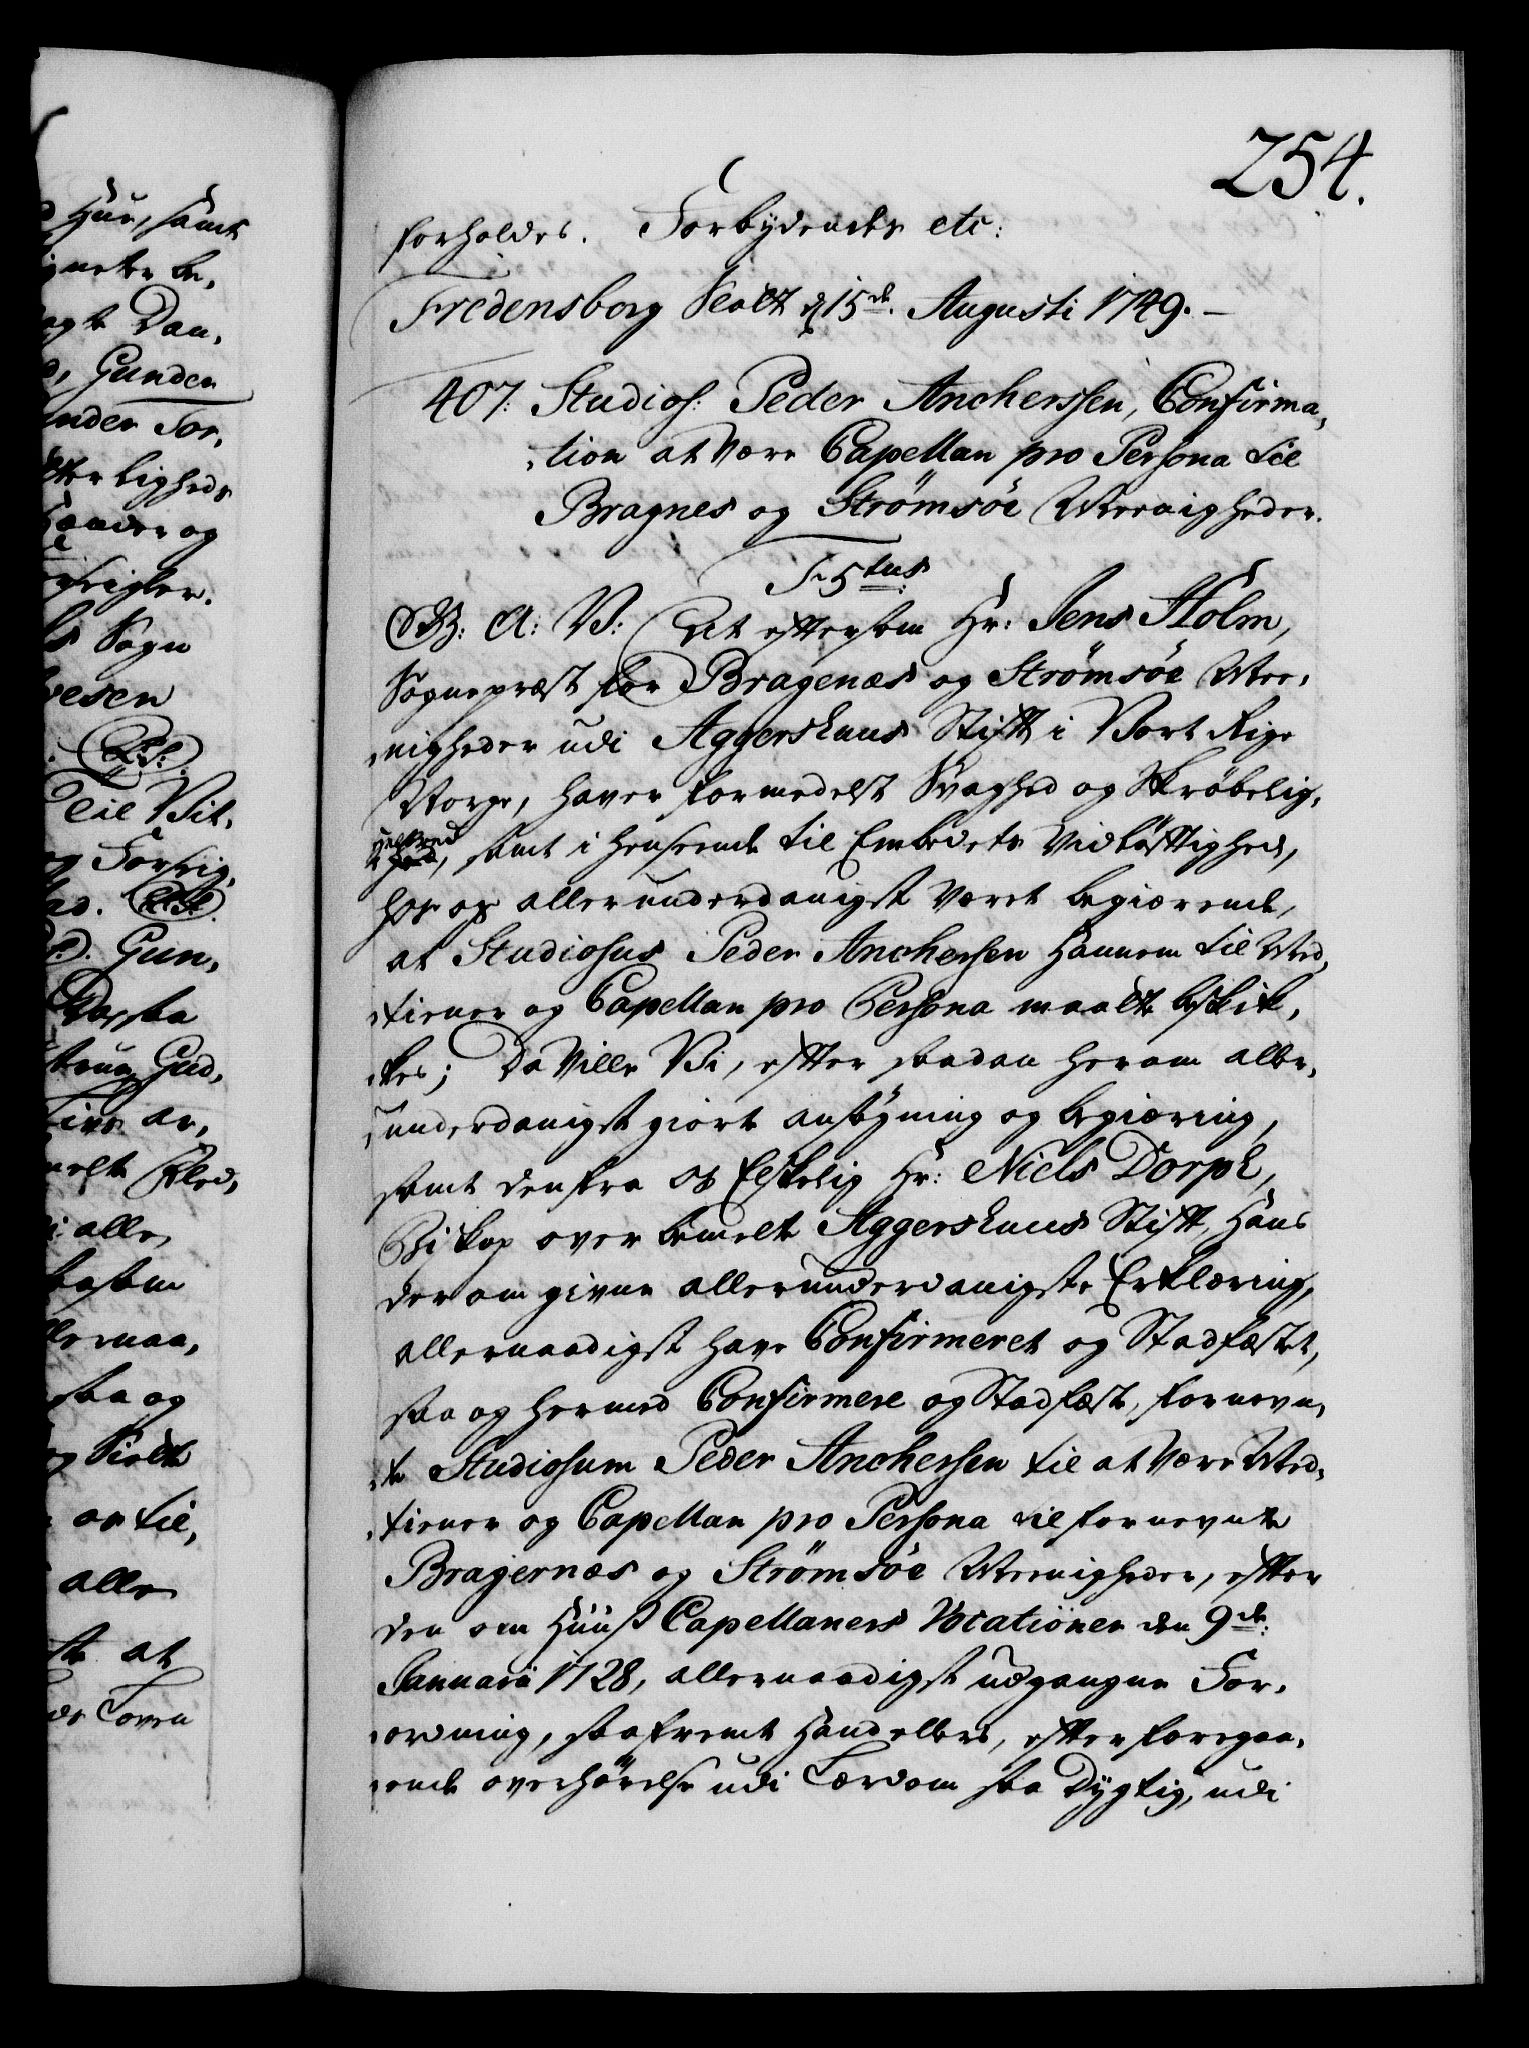 254.
forholdes. Forbydendes etc:
Fredensborg Slott d 15de. Augusti 1749. —
407. Studios: Peder Ancherssen, Confirma,
,tion at være Capellan pro Persona til
Bragnes og Strømsøe Meenigheder.
F 5tus
G: A: V: At eftersom Hr: Jens Holm,
Sognepræst for Bragenæs og Strømsøe Mee,
,nigheder udi Aggershuus Stift i Vort Rige
Norge, haver formedelst Svaghed og Skrøbelig,
,hed, samt i henseende til Embedets Vidtløftighed,
hos os allerunderdanigst været begiærende,
at Studiosus Peder Anchersen Hannem til Med,
,tiener og Capellan pro Persona maatte beskik,
,kes; Da Ville Vi, efter saadan herom aller,
,underdanigst giorte ansøgning og begiæring,
samt den fra os Elskelig Hr: Niels Dorph,
Biskop over bemelte Aggershuus Stift, Hans
derom givne allerunderdanigste Erklæring,
allernaadigst have Confirmeret og Stadfæstet,
saa og hermed Confirmere og Stadfæste, fornevn,
,te Studiosum Peder Anchersen til at være Med,
,tiener og Capellan pro Persona til fornevnte
Bragernæs og Strømsøe Meenigheder, efter
den om Huus Capellaners Vocationer den 9de:
Januarii 1728, allernaadigst udgangne For,
,ordning, saafremt Hand ellers, efter foregaa,
,ende overhørelse udi Lærdom saa Dygtig, udi
Huus, samt
Dan,
Gunder
under For,
ligheds
Hænder og
Sogn
Til Vit,
og Forsig,
Gun,
Gud,
alle
saa og
og Sielle
alle
at
Loven